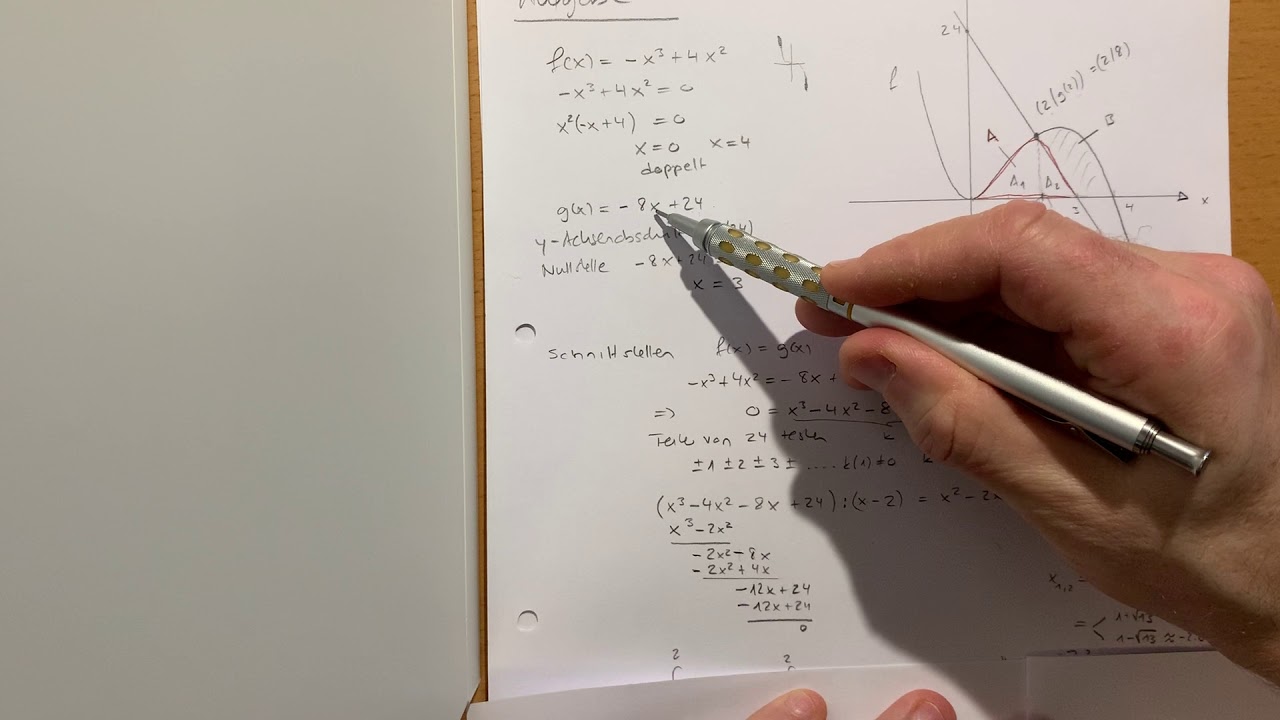 f(x) = - x³ + 4x²
- x³ + 4x² = 0
x²(-x+4) = 0
x = 0 x = 4
doppelt
g(x) = - 8x + 24
y-Achsenabschnitt
Nullstelle - 8x + 24
x = 3
Schnittstellen f(x) = g(x)
-x³ + 4x² = - 8x +
=> 0 = x³ - 4x² - 8
Teiler von 24 testen k
±1 ±2 ±3 ± .... k(1) ≠ 0 k
(x³ - 4x² - 8x + 24) : (x-2) = x² - 2x
x³ - 2x²
- 2x² - 8x
- 2x² + 4x
-12x + 24
-12x + 24
0
2
2
24
f
(2/g(2)) = (2/8)
A
B
A₁
A₂
3
4
x
x₁,₂ =
= < 1+√13
1-√13 ≈ -2.6